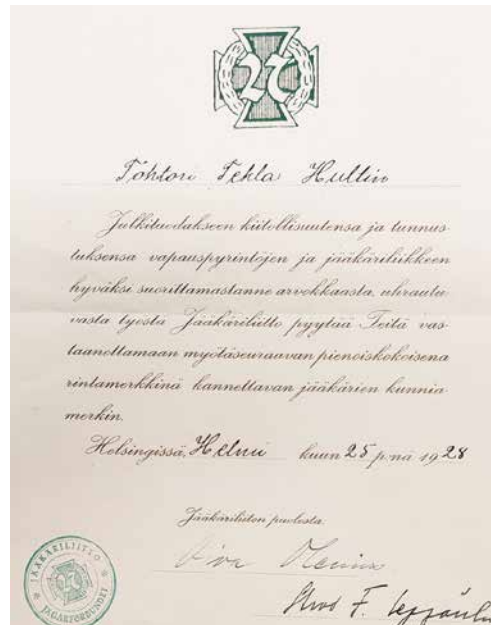 27
Tohtori Tekla Hultin
Julkituodakseen kiitollisuutensa ja tunnus-
tuksensa vapauspyrintöjen ja jääkäriliikkeen
hyväksi suorittamastanne arvokkaasta, uhrautu-
vasta työstä Jääkäriliitto pyytää Teitä vas-
taanottamaan myötäseuraavan pienoiskokoisena
rintamerkkinä kannettavan jääkärien kunnia-
merkin.
Helsingissä, Helmi kuun 25 p:nä 1928
Jääkäriliiton puolesta:
F.
JÄÄKÄRILIITTO
27
JÄGARFÖRBUNDET